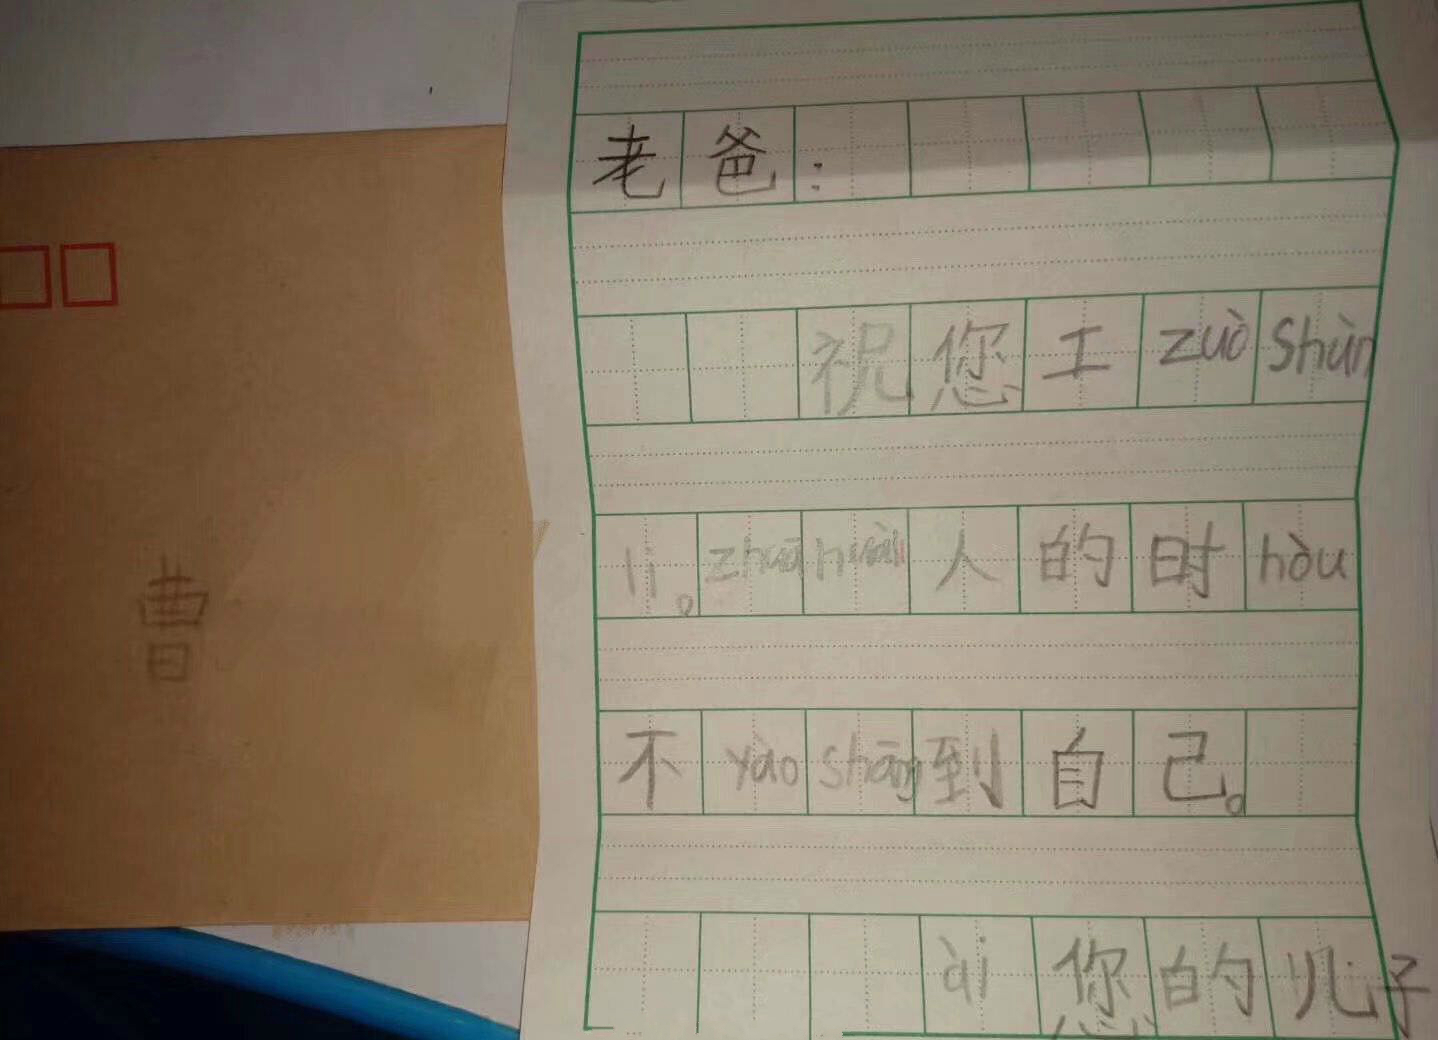 曹
老爸：
祝您工zuòshùn
lì。zhuāhuài人的时hòu
不yàoshāng到自己。
ài您的儿子